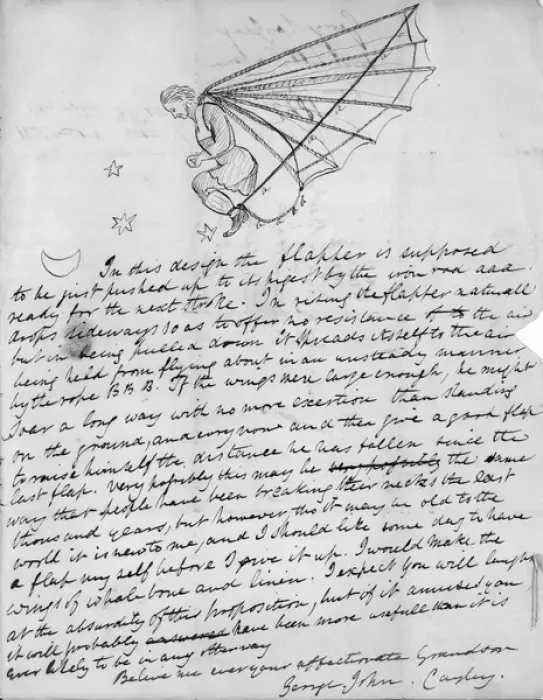 In this design the flapper is supposed
to be just pushed up to its higest by the iron rod aaa
ready for the next stroke. In rising the flapper naturall
drops sideways so as to offer no resistance of to the air
but in being pulled down it spreads itself to the air
being held from flying about in an unsteady manner
by the rope B B B. If the wings were large enough, he might
soar a long way with no more exertion than standing
on the ground, and every now and then give a good flap
to raise himself the distance he was fallen since the
last flap. Very popobly this may be the same
way that people have been breaking their necks the last
thousand years, but however, tho it may be old to the
world it is new to me, and I should like some day to have
a flap my self before I give it up. I would make the
wings of whale bone and linen. I expect you will laugh
at the absurdity of this proposition, but if it amuses you
it will probably answered have been more usefull than it is
ever likely to be in any other way
Believe me ever your affectionate Grandson
George John. Cayley.